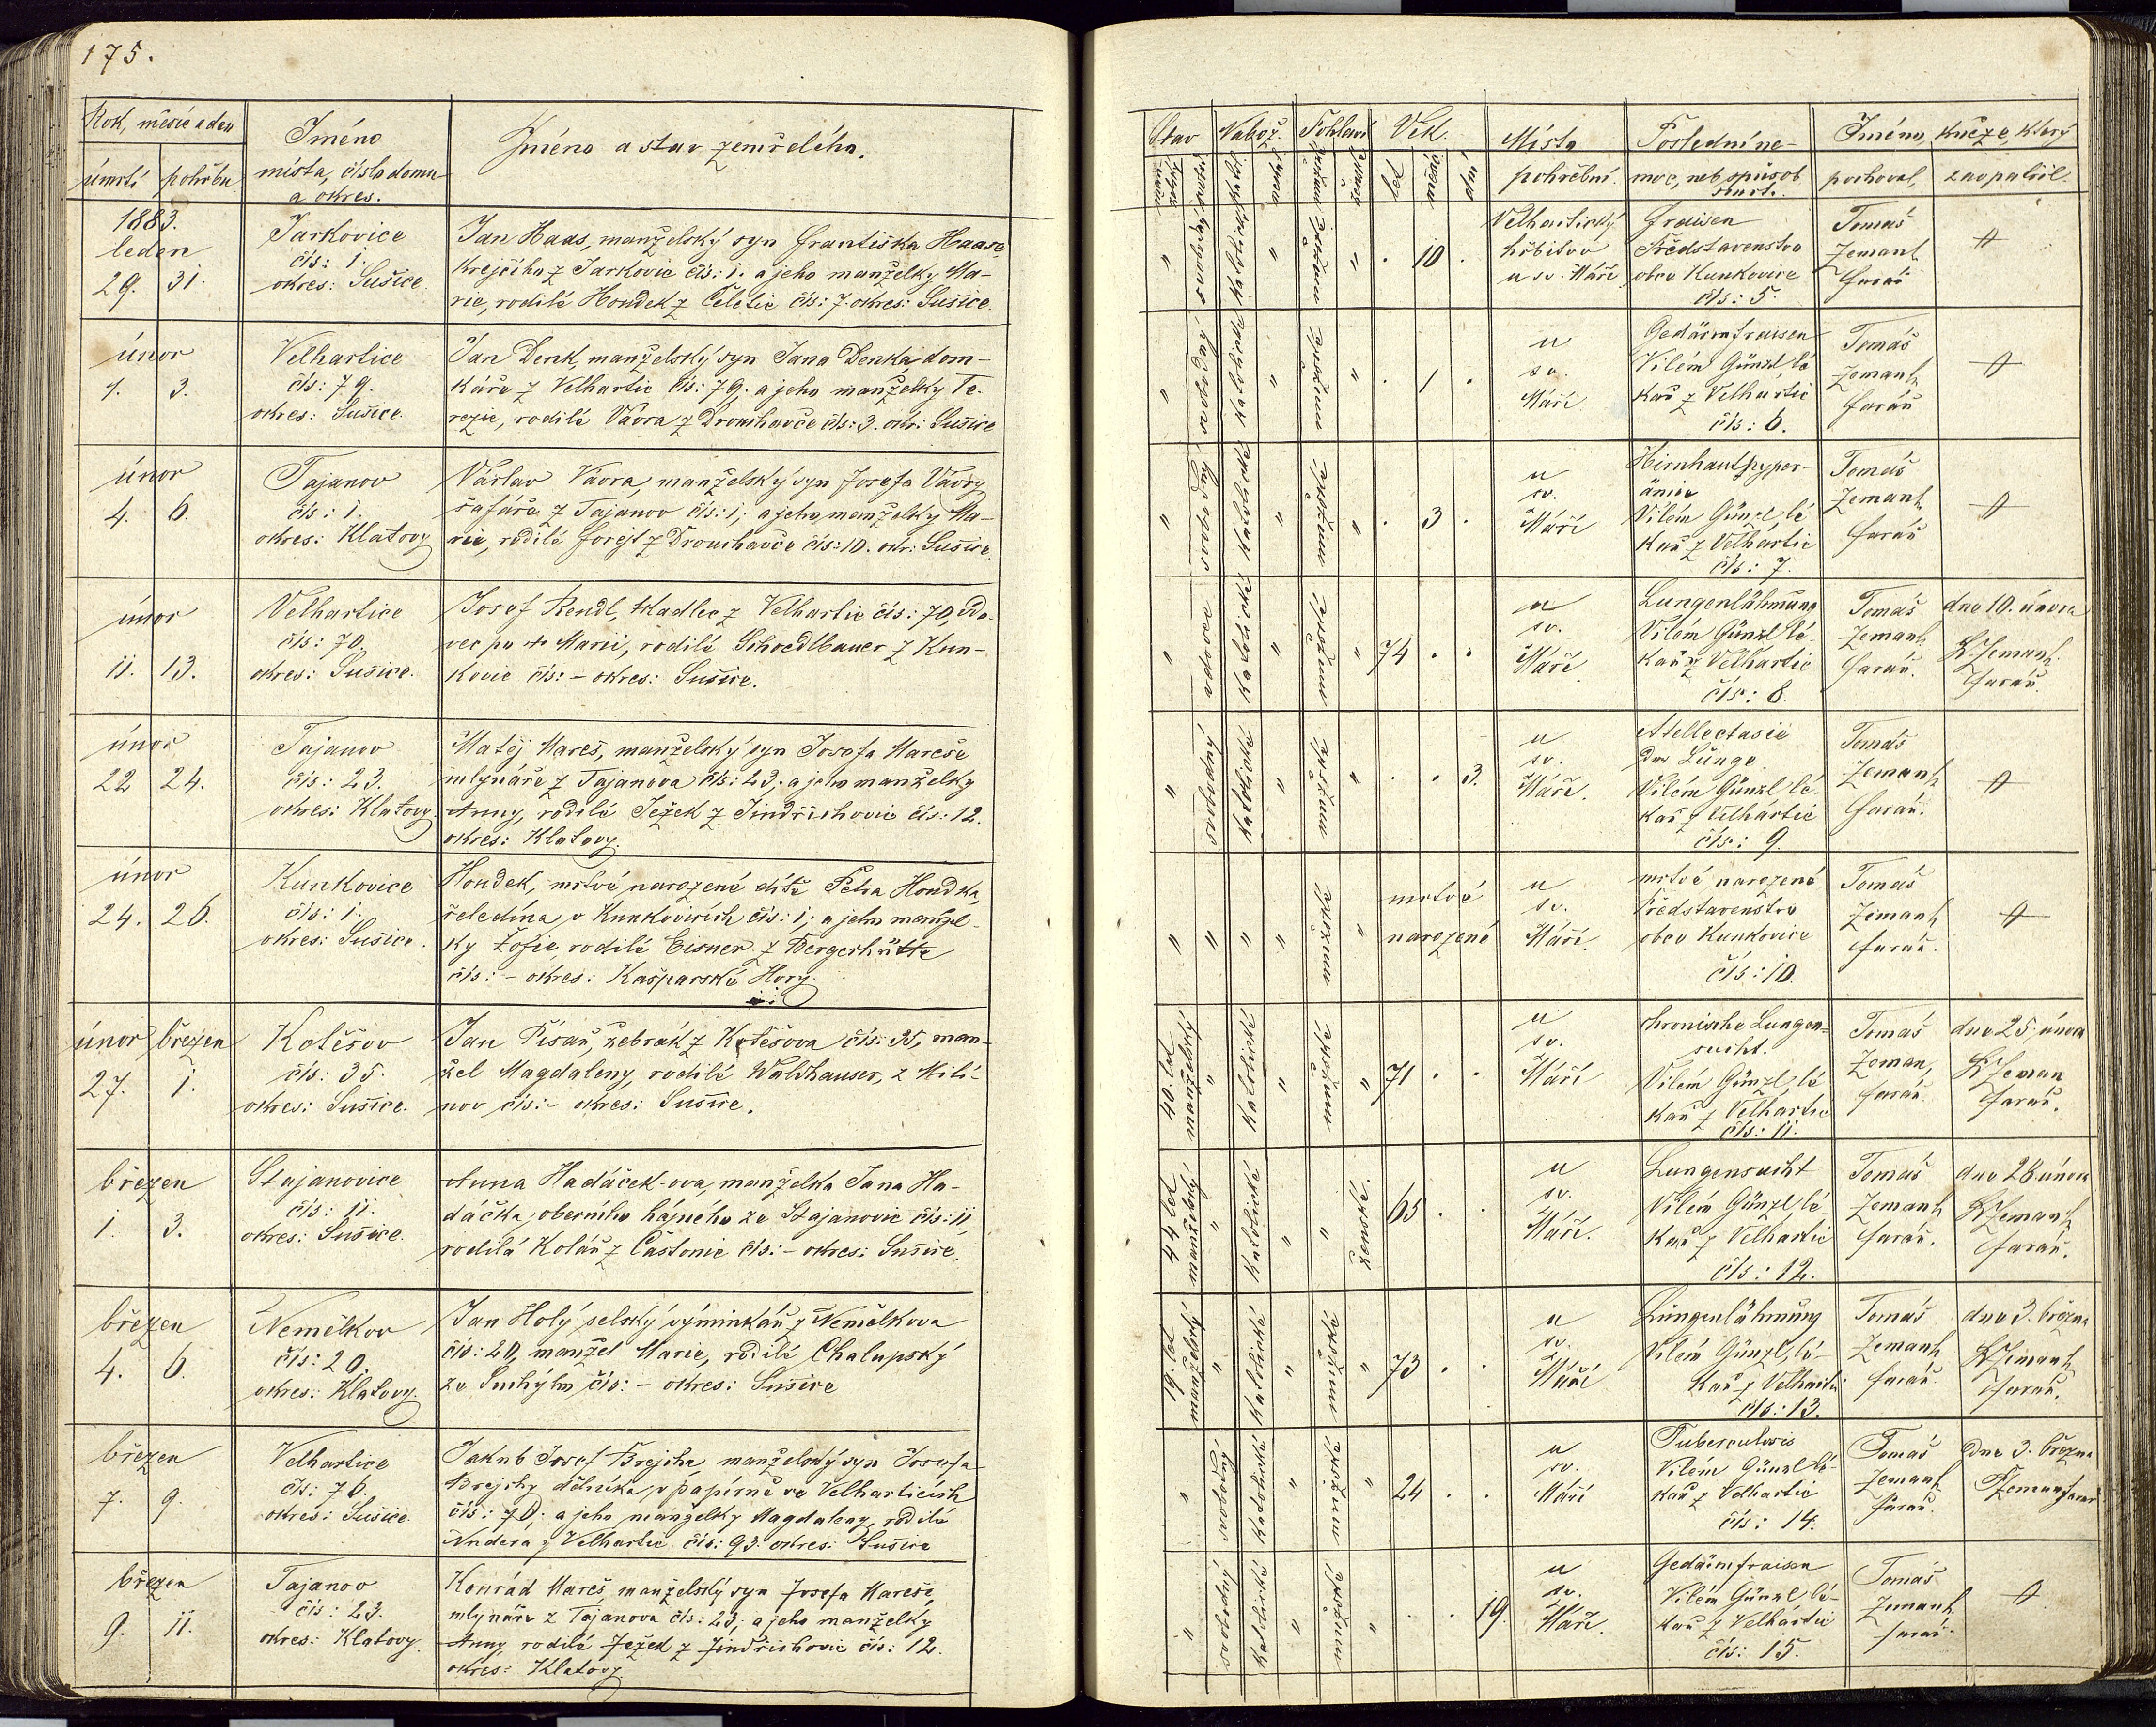 175.
Rok, měsíc a den
úmrtí pohřbu
Jméno
místa, číslo domu
a okres.
Jméno a stav zemřelého.
1883.
leden
29. 31.
Jarkovice
čís: 1.
okres: Sušice.
Jan Haas, manželský syn Františka Haase
krejčího z Jarkovic čís: 1. a jeho manželky Ma-
rie, rodilé Houdek z Čeletic čís: 7. okres: Sušice.
únor
1. 3.
Velhartice
čís: 79.
okres: Sušice.
Jan Denk, manželský syn Jana Denka, dom-
káře z Velhartic čís: 79, a jeho manželky Te-
rezie, rodilé Vávra z Drouhavče čís: 3. okr: Sušice
únor
4. 6.
Tajanov
čís: 1.
okres: Klatovy
Václav Vávra, manželský syn Josefa Vávry
šafáře z Tajanov čís: 1; a jeho manželky Ma-
rie, rodilé Forejt z Drouhavče čís: 10. okr: Sušice.
únor
11. 13.
Velhartice
čís: 70.
okres: Sušice.
Josef Rendl, tkadlec z Velhartic čís: 70, vdo-
vec po Marii, rodilé Schoedlbauer z Kun-
kovic čís: - okres: Sušice.
únor
22 24.
Tajanov
čís: 23.
okres: Klatovy.
Matěj Mareš, manželský syn Josefa Mareše
mlynáře z Tajanova čís: 23; a jeho manželky
Anny, rodilé Ježek z Jindřichovic čís: 12.
okres: Klatovy.
únor
24. 26.
Kunkovice
čís: 1.
okres: Sušice.
Houdek, mrtvé narozené dítě Petra Houdka,
čeledína v Kunkovicích čís: 1; a jeho manžel-
ky Žofie, rodilé Eisner z Bergerhütte
čís: - okres: Kašparské Hory.
únor březen
27. 1.
Kotěšov
čís: 35.
okres: Sušice.
Jan Písař, žebrák z Kotěšova čís: 35, man-
žel Magdaleny, rodilé Waldhauser, z Miti-
nov čís: - okres: Sušice.
březen
1. 3.
Stajanovice
čís: 11.
okres: Sušice.
Anna Hadáček-ova, manželka Jana Ha-
dáčka, obecního hájného ze Stajanovic čís: 11,
rodilá Kolář z Častonic čís: - okres: Sušice.
březen
4. 6.
Nemělkov
čís: 20.
okres: Klatovy.
Jan Holý selský výminkář z Nemělkova
čís: 20, manžel Marie, rodilé Chalupský
ze Suchých, čís: - okres: Sušice
březen
7. 9.
Velhartice
čís: 76.
okres: Sušice.
Jakub Josef Brejcha, manželský syn Josefa
Brejchy dělníka v papírně ve Velharticích
čís: 70; a jeho manželky Magdaleny, rodilé
Andera z Velhartic čís: 93. okres: Sušice
březen
9. 11.
Tajanov
čís: 23.
okres: Klatovy.
Konrád Mareš, manželský syn Josefa Mareše,
mlynáře z Tajanova čís: 23; a jeho manželky
Anny rodilé Ježek z Jindřichovic čís: 12.
okres: Klatovy.
Stav Nábož. Pohlaví Věk.
let měsíců dnů
Místo
pohřební.
Poslední ne-
moc, neb způsob
smrti.
Jméno, kněze, který
pochoval, zaopatřil.
" svobodný katolické " mužské " . 10 .
Velhartický
hřbitov
u sv. Máří
Fraisen
Představenstvo
obce Kunkovice
čís: 5.
Tomáš
Zemank
farář
" svobodný katolické " mužské " . 1 .
u
sv.
Máří
Gedärmfraisen
Vilém Günzl, lé-
kař z Velhartic
čís: 6.
Tomáš
Zemank
farář
" svobodný katolické " mužské " . 3 .
u
sv.
Máří
Hirnhauthyper-
ämie
Vilém Günzl, lé-
kař z Velhartic
čís: 7.
Tomáš
Zemank
farář
" vdovec katolické " mužské " 74 . .
u
sv.
Máří.
Lungenlähmung
Vilém Günzl lé-
kař z Velhartic
čís: 8.
Tomáš
Zemank
farář.
dne 10. února
Zemank
farář.
" svobodný katolické " mužské " . . 3.
u
sv.
Máří.
Atellectasie
der Lunge.
Vilém Günzl lé-
kař z Velhartic
čís: 9.
Tomáš
Zemank
farář.
" " " " mužské "
mrtvé
narozené
u
sv.
Máří.
mrtvé narozené
Představenstvo
obce Kunkovice
čís: 10.
Tomáš
Zemank
farář.
40. let manželský " katolické " mužské " 71 . .
u
sv.
Máří
chronische Lungen-
sucht.
Vilém Günzl, lé-
kař z Velhartic
čís: 11.
Tomáš
Zeman,
farář
dne 25. února
Zeman
farář.
44 let manželský " katolické " " ženské. 65 . .
u
sv.
Máří.
Lungensucht
Vilém Günzl lé-
kař z Velhartic
čís: 12.
Tomáš
Zemank
farář.
dne 28 února
Zemank
farář.
19. let manželský " katolické " mužské " 73 . .
u
sv.
Máří
Lungenlähmung
Vilém Günzl, lé-
kař z Velhartic
čís: 13.
Tomáš
Zemank
farář.
dne 3. března
Zemank
farář.
" svobodný katolické " mužské " 24 . .
u
sv.
Máří
Tuberculosis
Vilém Günzl lé-
kař z Velhartic
čís: 14.
Tomáš
Zemank
farář.
dne 3. března
Zemank farář
" svobodný katolické " mužské " . . 19.
u
sv.
Máří.
Gedärmfraisen
Vilém Günzl lé-
kař z Velhartic
čís: 15.
Tomáš
Zemank
farář.